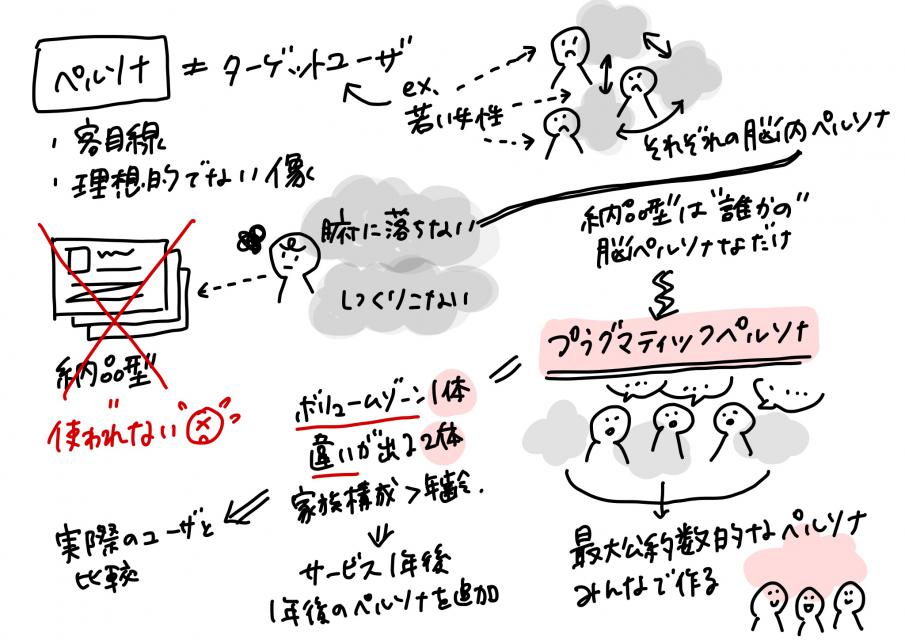 ペルソナ ≠ ターゲットユーザ
・客目線
・理想的でない像
ex.
若い女性
それぞれの脳内ペルソナ
腑に落ちない
しっくりこない
納品型は"誰かの"
脳ペルソナなだけ
納品型
"使われない"
プラグマティックペルソナ
ボリュームゾーン1体
違いが出る2体
家族構成>年齢.
サービス1年後
1年後のペルソナを追加
実際のユーザと
比較
最大公約数的なペルソナ
みんなで作る